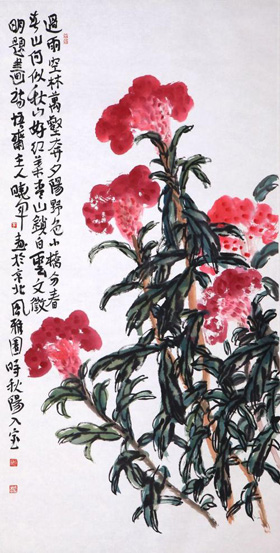 過雨空林萬壑奔夕陽野色小橋分春
春山何似秋山好紅葉青山鎖白雲文徵
明題畫詩主人晚軍畫於京北風雅園時秋陽入室